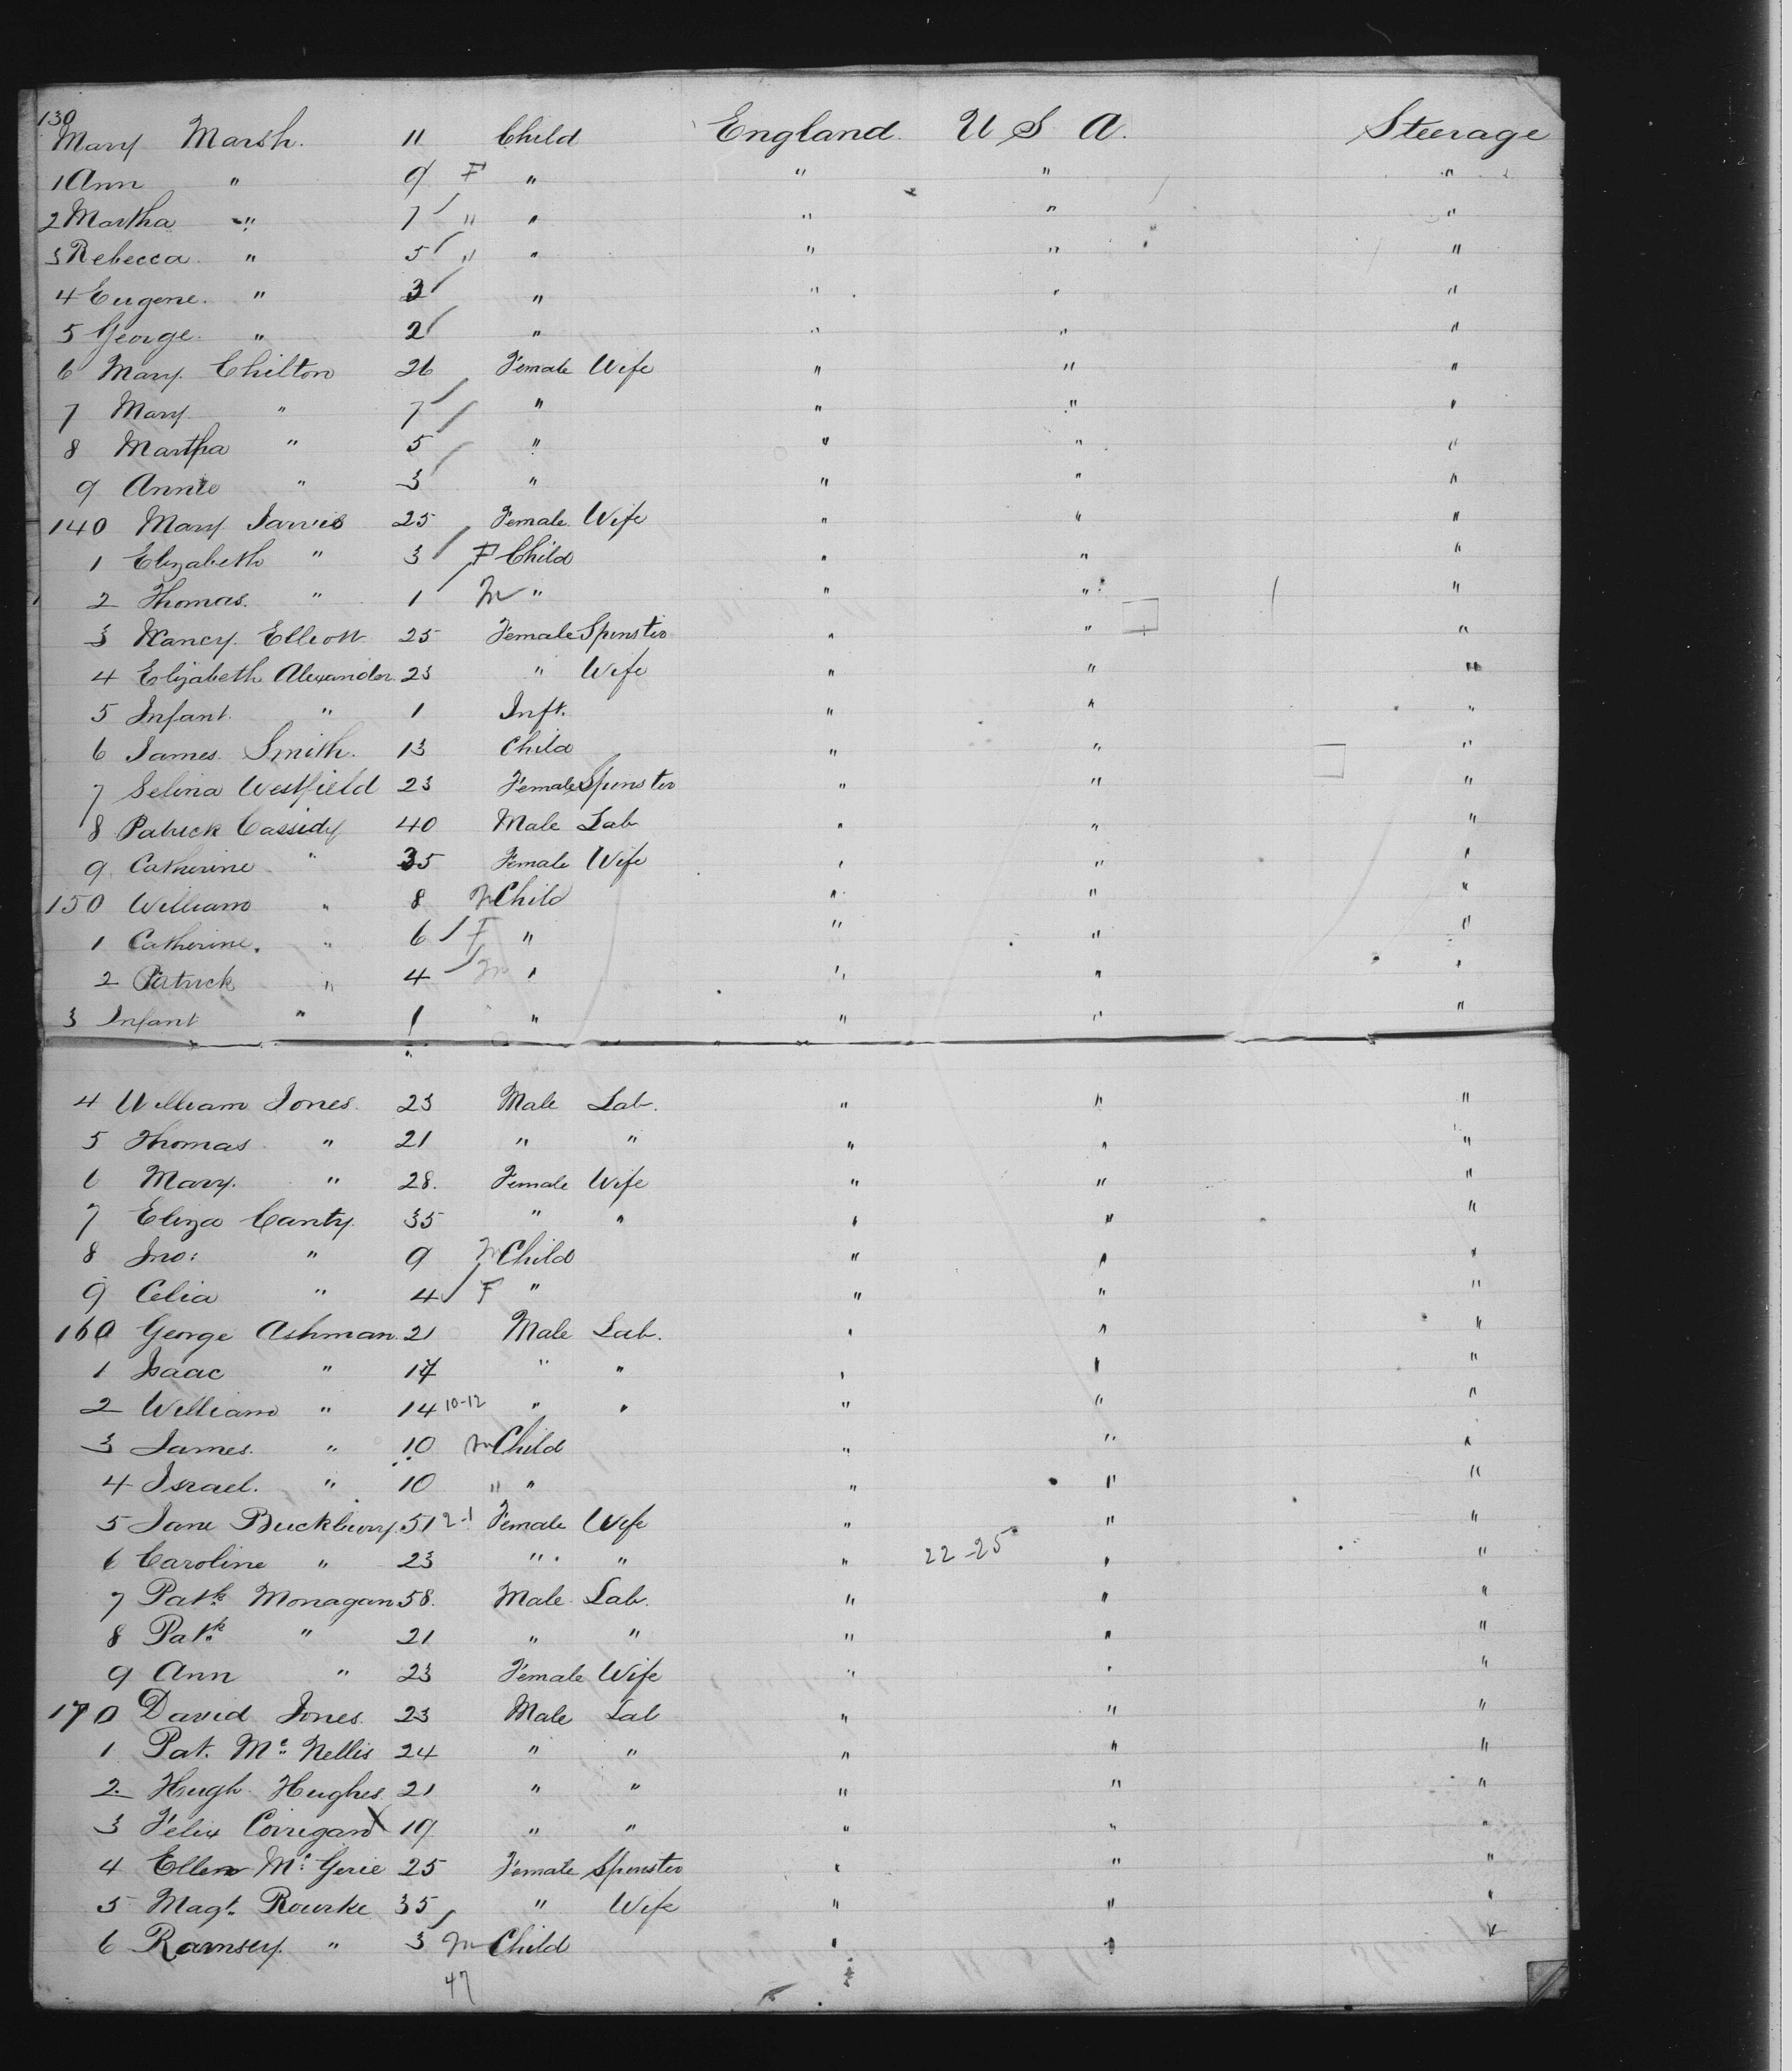 130
Mary Marsh. 11 Child England. U S A. Steerage
1 Ann " 9 F " " " "
2 Martha " 7 " " " " "
3 Rebecca. " 5 " " " " "
4 Eugene. " 3 " " " "
5 George. " 2 " " " "
6 Mary. Chilton 26 Female Wife " " "
7 Mary " 7 " " " "
8 Martha " 5 " " " "
9 Annie " 3 " " " "
140 Mary Jarvis 25 Female Wife " " "
1 Elizabeth " 3 F Child " " "
2 Thomas. " 1 M " " " "
3 Nancy. Elliott 25 Female Spinster " " "
4 Elizabeth Alexander. 23 " Wife " " "
5 Infant. " 1 Inft. " " "
6 James Smith. 13 Child " " "
7 Selina Westfield 23 Female Spinster " " "
8 Patrick Cassidy 40 Male Lab " " "
9 Catherine " 35 Female Wife " " "
150 William " 8 M Child " " "
1 Catherine. " 6 F " " " "
2 Patrick " 4 M " " " "
3 Infant " 1 " " " "
4 William Jones. 23 Male Lab. " " "
5 Thomas " 21 " " " " "
6 Mary. " 28. Female Wife " " "
7 Eliza Canty. 35 " " " " "
8 Jno: " 9 M Child " " "
9 Celia " 4 F " " " "
160 George Ashman. 21 Male Lab. " " "
1 Isaac " 17 " " " " "
2 William " 14 10-12 " " " " "
3 James. " 10 M Child " " "
4 Israel. " 10 " " " " "
5 Jane Buckbury. 51 2-1 Female Wife " " "
6 Caroline " 23 " " " 22-25 " "
7 Patk. Monagan 58. Male Lab. " " "
8 Patk. " 21 " " " " "
9 Ann " 23 Female Wife " " "
170 David Jones. 23 Male Lab " " "
1 Pat. Mc Nellis 24 " " " " "
2 Hugh Hughes 21 " " " " "
3 Felix Corrigan X 19 " " " " "
4 Ellen Mc Gerie 25 Female Spinster " " "
5 Magt. Rourke 35 " Wife " " "
6 Ramsey. " 3 M Child " " "
47